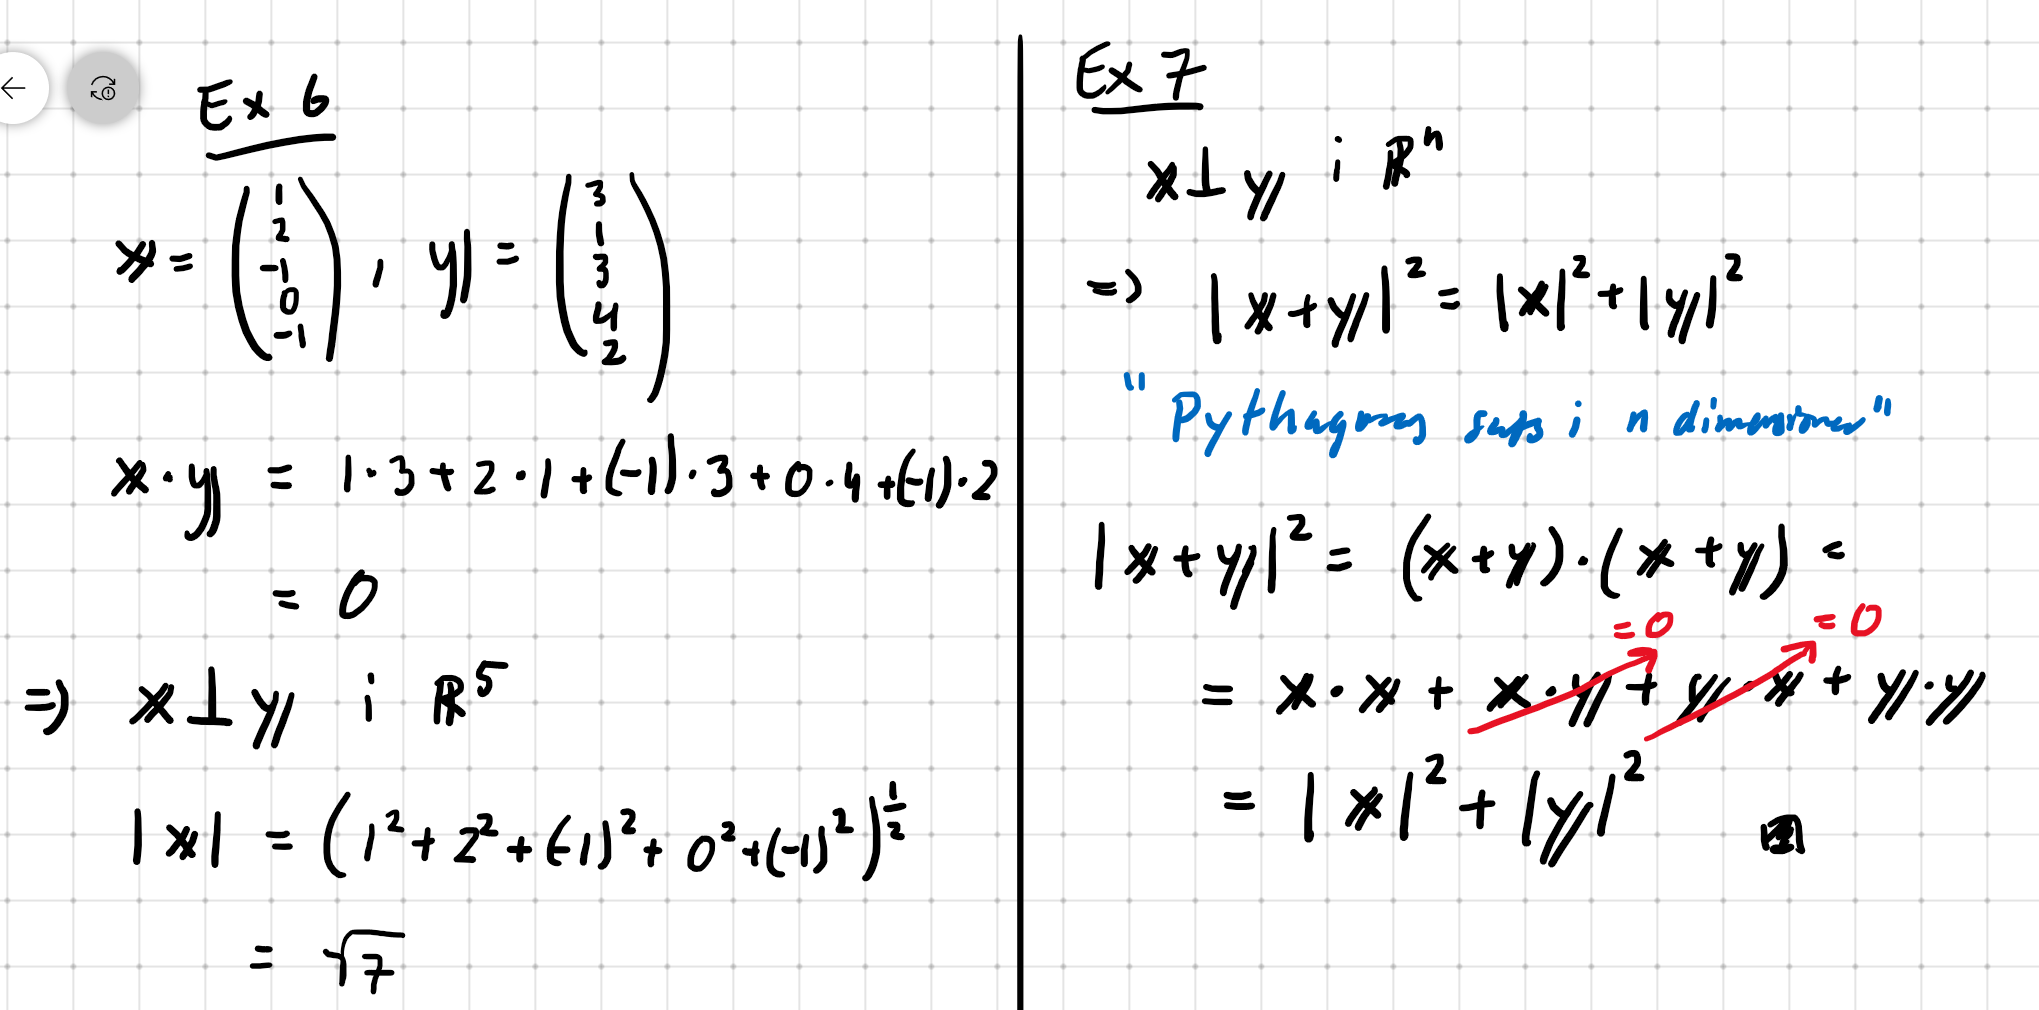 Ex 6
x = (1 2 -1 0 -1), y = (3 1 3 4 2)
x · y = 1·3 + 2·1 + (-1)·3 + 0·4 + (-1)·2
= 0
=> x ⊥ y i ℝ⁵
|x| = (1² + 2² + (-1)² + 0² + (-1)²)^½
= √7
Ex 7
x ⊥ y i ℝⁿ
=> |x + y|² = |x|² + |y|²
"Pythagoras sats i n dimensioner"
|x + y|² = (x + y) · (x + y) =
=0 =0
= x · x + x · y + y · x + y · y
= |x|² + |y|²